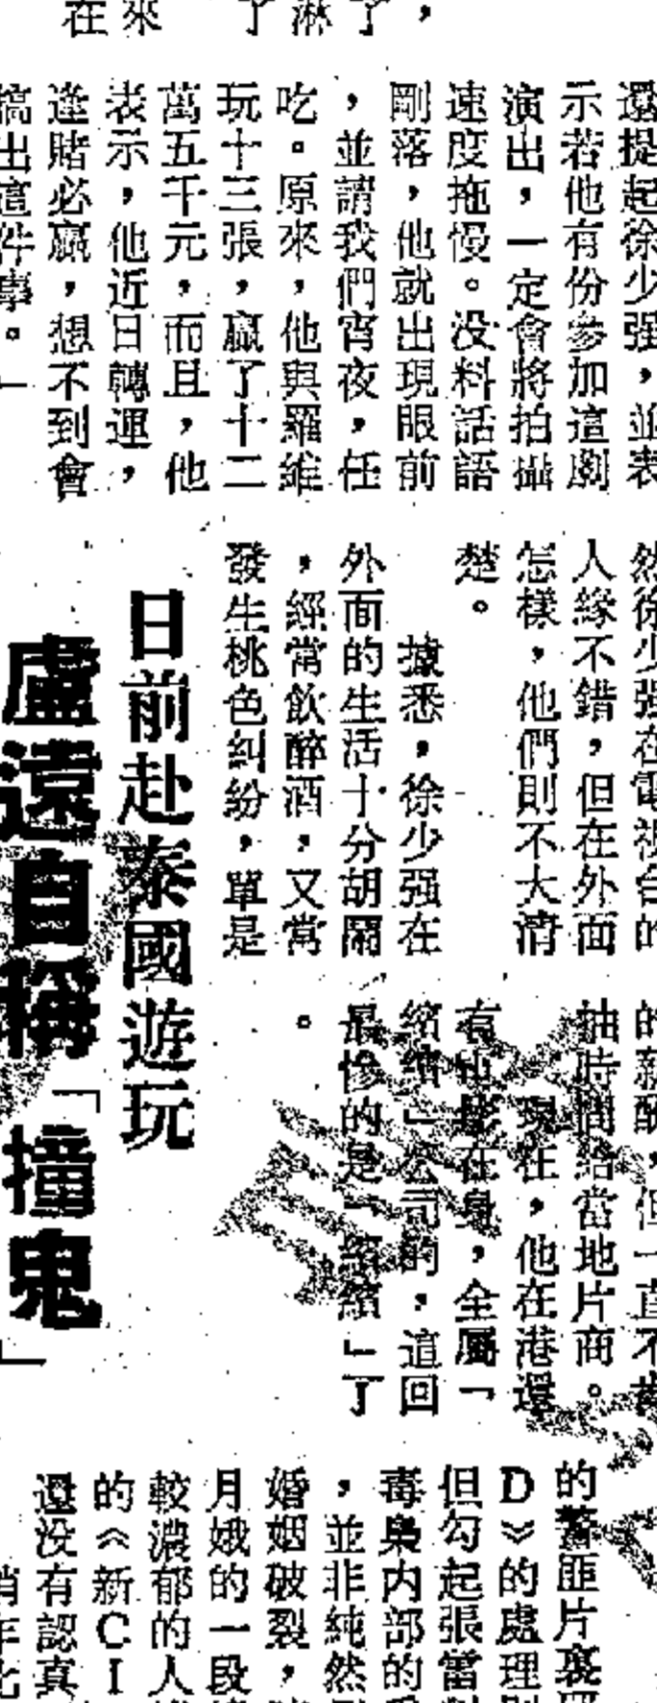 在來
了淋了，
還提起徐少强，並表
示若他有份參加這劇
演出，一定會將拍攝
速度拖慢。没料話語
剛落，他就出現眼前
，並請我們宵夜，任
吃。原來，他與羅維
玩十三張，贏了十二
萬五千元，而且，他
表示，他近日轉運，
逢賭必贏，想不到會
搞出這件事。」
然徐少强在電視台的
人緣不錯，但在外面
怎樣，他們則不大清
楚。
據悉，徐少强在
外面的生活十分胡鬧
，經常飲醉酒，又常
發生桃色糾紛，單是
的薪酬，但一直不
抽時間給當地片商。
現在，他在港還
有電影在身，全屬「
繽繽」公司的，這回
最慘的是「繽繽」了
。
日前赴泰國遊玩
盧遠自稱「撞鬼」
的警匪片裏
D》的處理
但勾起張當
毒梟内部的
，並非純然
婚姻破裂，
月娥的一段
較濃郁的人
的《新CI
還没有認真